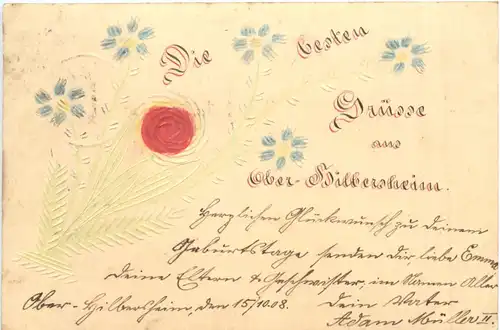 Die besten
Grüsse
aus
Ober-Hilbersheim.
Herzlichen Glückwunsch zu deinem
Geburtstage senden dir liebe Emma
Deine Eltern & Geschwister, im Namen Aller
Ober-Hilbersheim, den 15/10.08. Dein Vater
Adam Müller II.